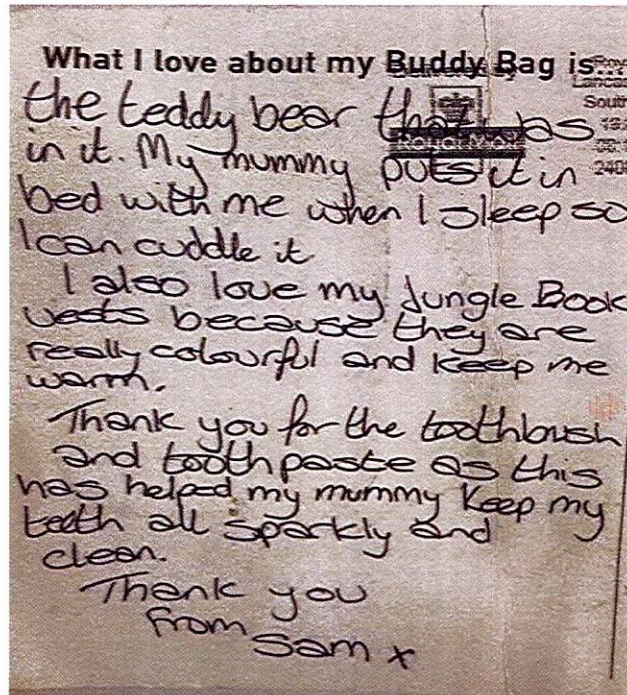 What I love about my Buddy Bag is...
the teddy bear that was
in it. My mummy puts it in
bed with me when I sleep so
I can cuddle it
I also love my Jungle Book
vests because they are
really colourful and keep me
warm.
Thank you for the toothbush
and toothpaste as this
has helped my mummy keep my
teeth all sparkly and
clean.
Thank you
from
Sam x
Royal Mail